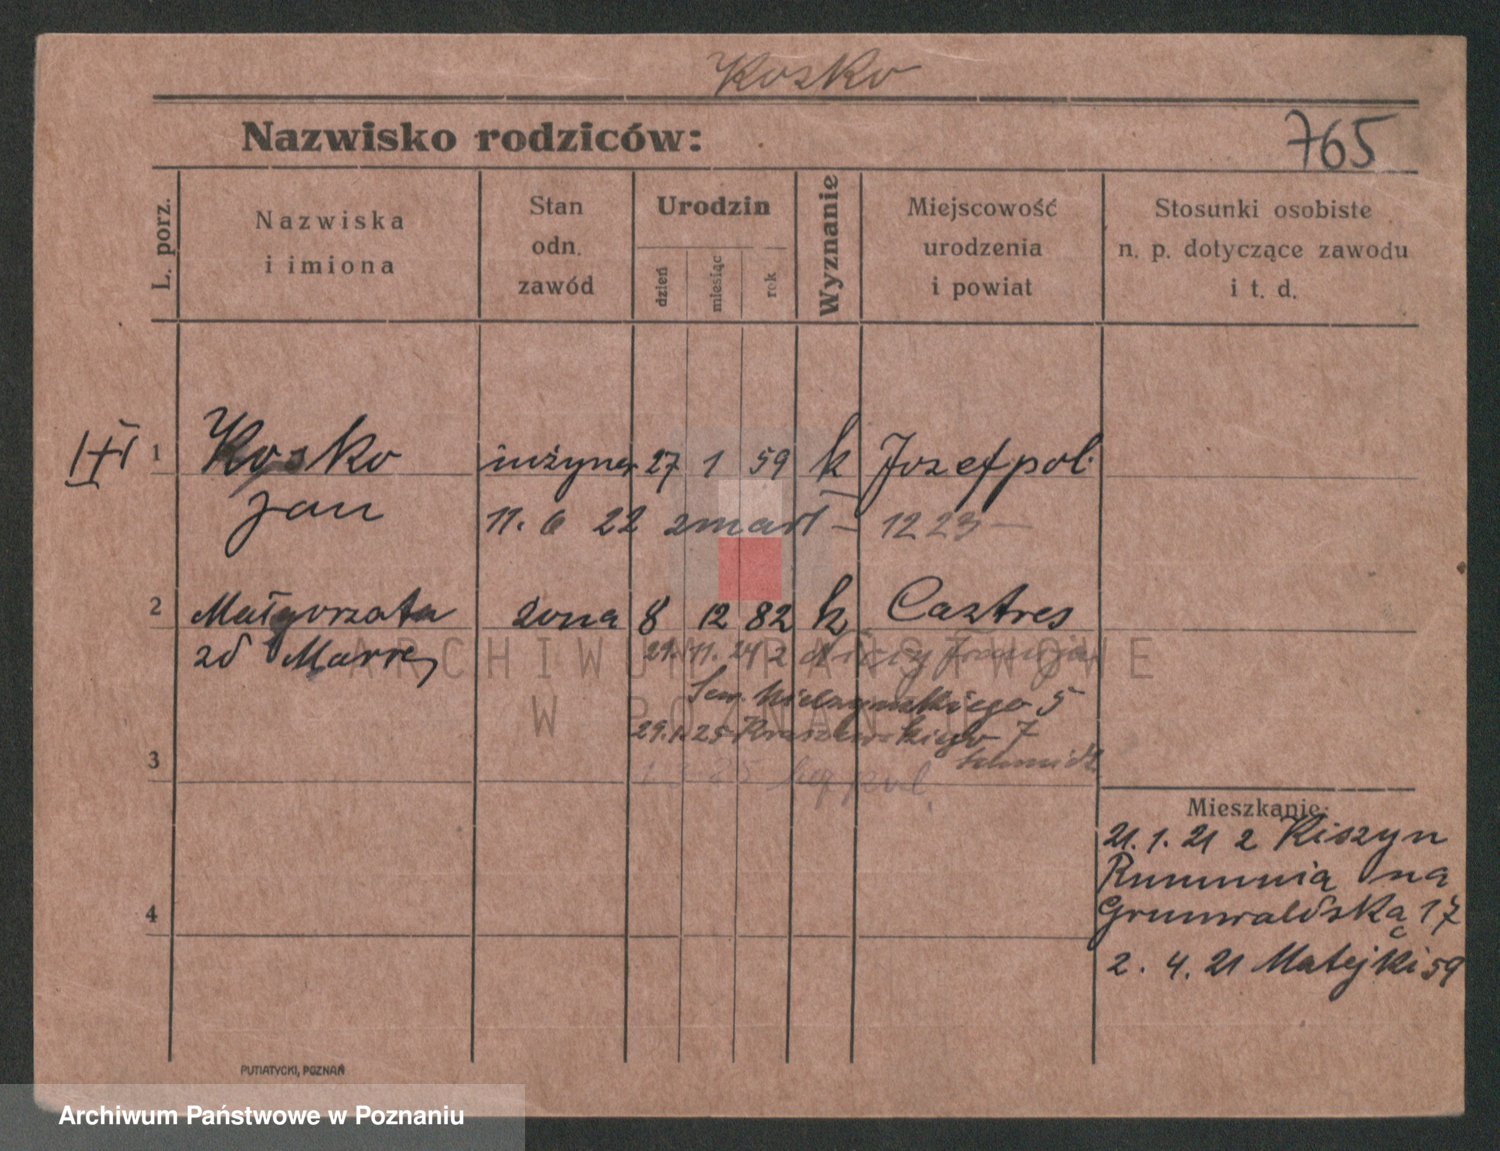 Kosko
Nazwisko rodziców:
765
L. porz.
Nazwiska
i imiona
Stan
odn.
zawód
Urodzin
dzień
miesiąc
rok
Wyznanie
Miejscowość
urodzenia
i powiat
Stosunki osobiste
n. p. dotyczące zawodu
i t. d.
1 Kosko inżynier 27 1 59 k Jozefpol
Jan 11. 6 22 zmarł — 1223 —
2 Małgorzata żona 8 12 82 k Caztres
zd Marre 29. 11. 24 z Francja
Sew. Mielżyńskiego 5
29.1.25 Kraszewskiego 7
Schmidt
3
4
Mieszkanie:
21. 1. 21 z Kiszyn
Rumunia na
Grunwaldską 17
2. 4. 21 Matejki 59
ARCHIWUM PAŃSTWOWE
W POZNANIU
PUTIATYCKI, POZNAŃ
Archiwum Państwowe w Poznaniu